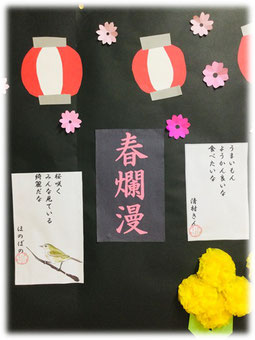 うまいもん
ようかん良いな
食べたいな
清村さん
春爛漫
桜咲く
みんな見ている
綺麗だな
ほのぼの